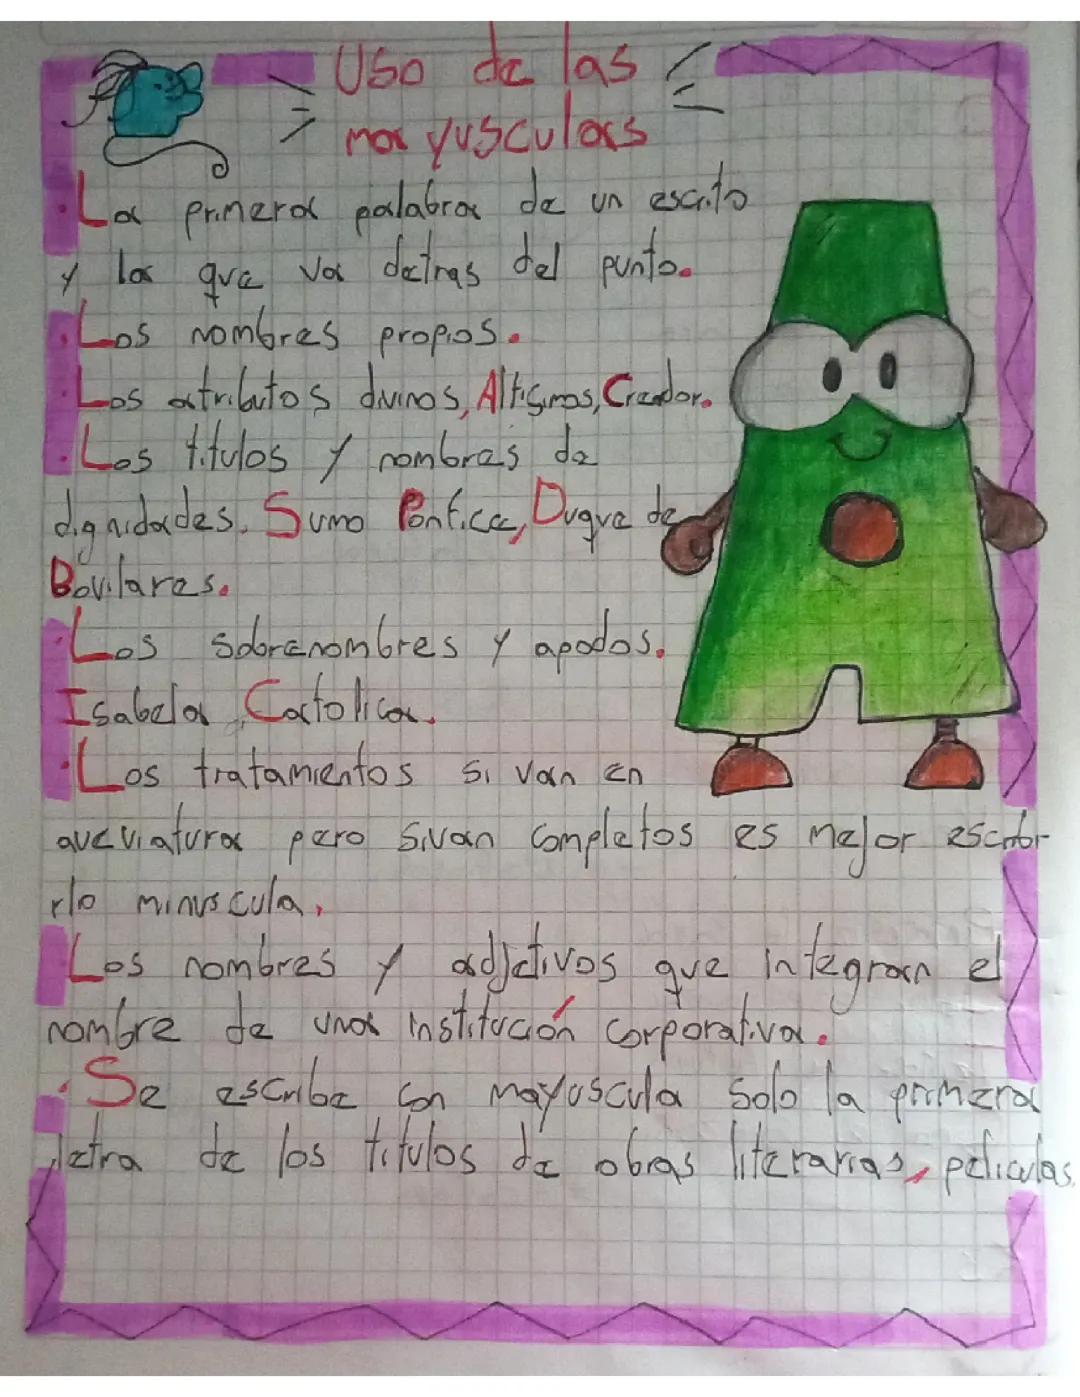 Uso de las
mayusculas
·La primera palabra de un escrito
y la que va detras del punto.
·Los nombres propios.
·Los atributos divinos, Altisimos, Creador.
·Los titulos y nombres de
dignidades. Sumo Pontice, Duque de
Bovilares.
·Los sobrenombres y apodos.
Isabela Catolica.
·Los tratamientos si van en
aveviatura pero sivan completos es mejor escribir
rlo minuscula,
Los nombres y adjetivos que integran el
nombre de una institución corporativa.
·Se escribe con mayuscula solo la primera
letra de los titulos de obras literarias, peliculas.